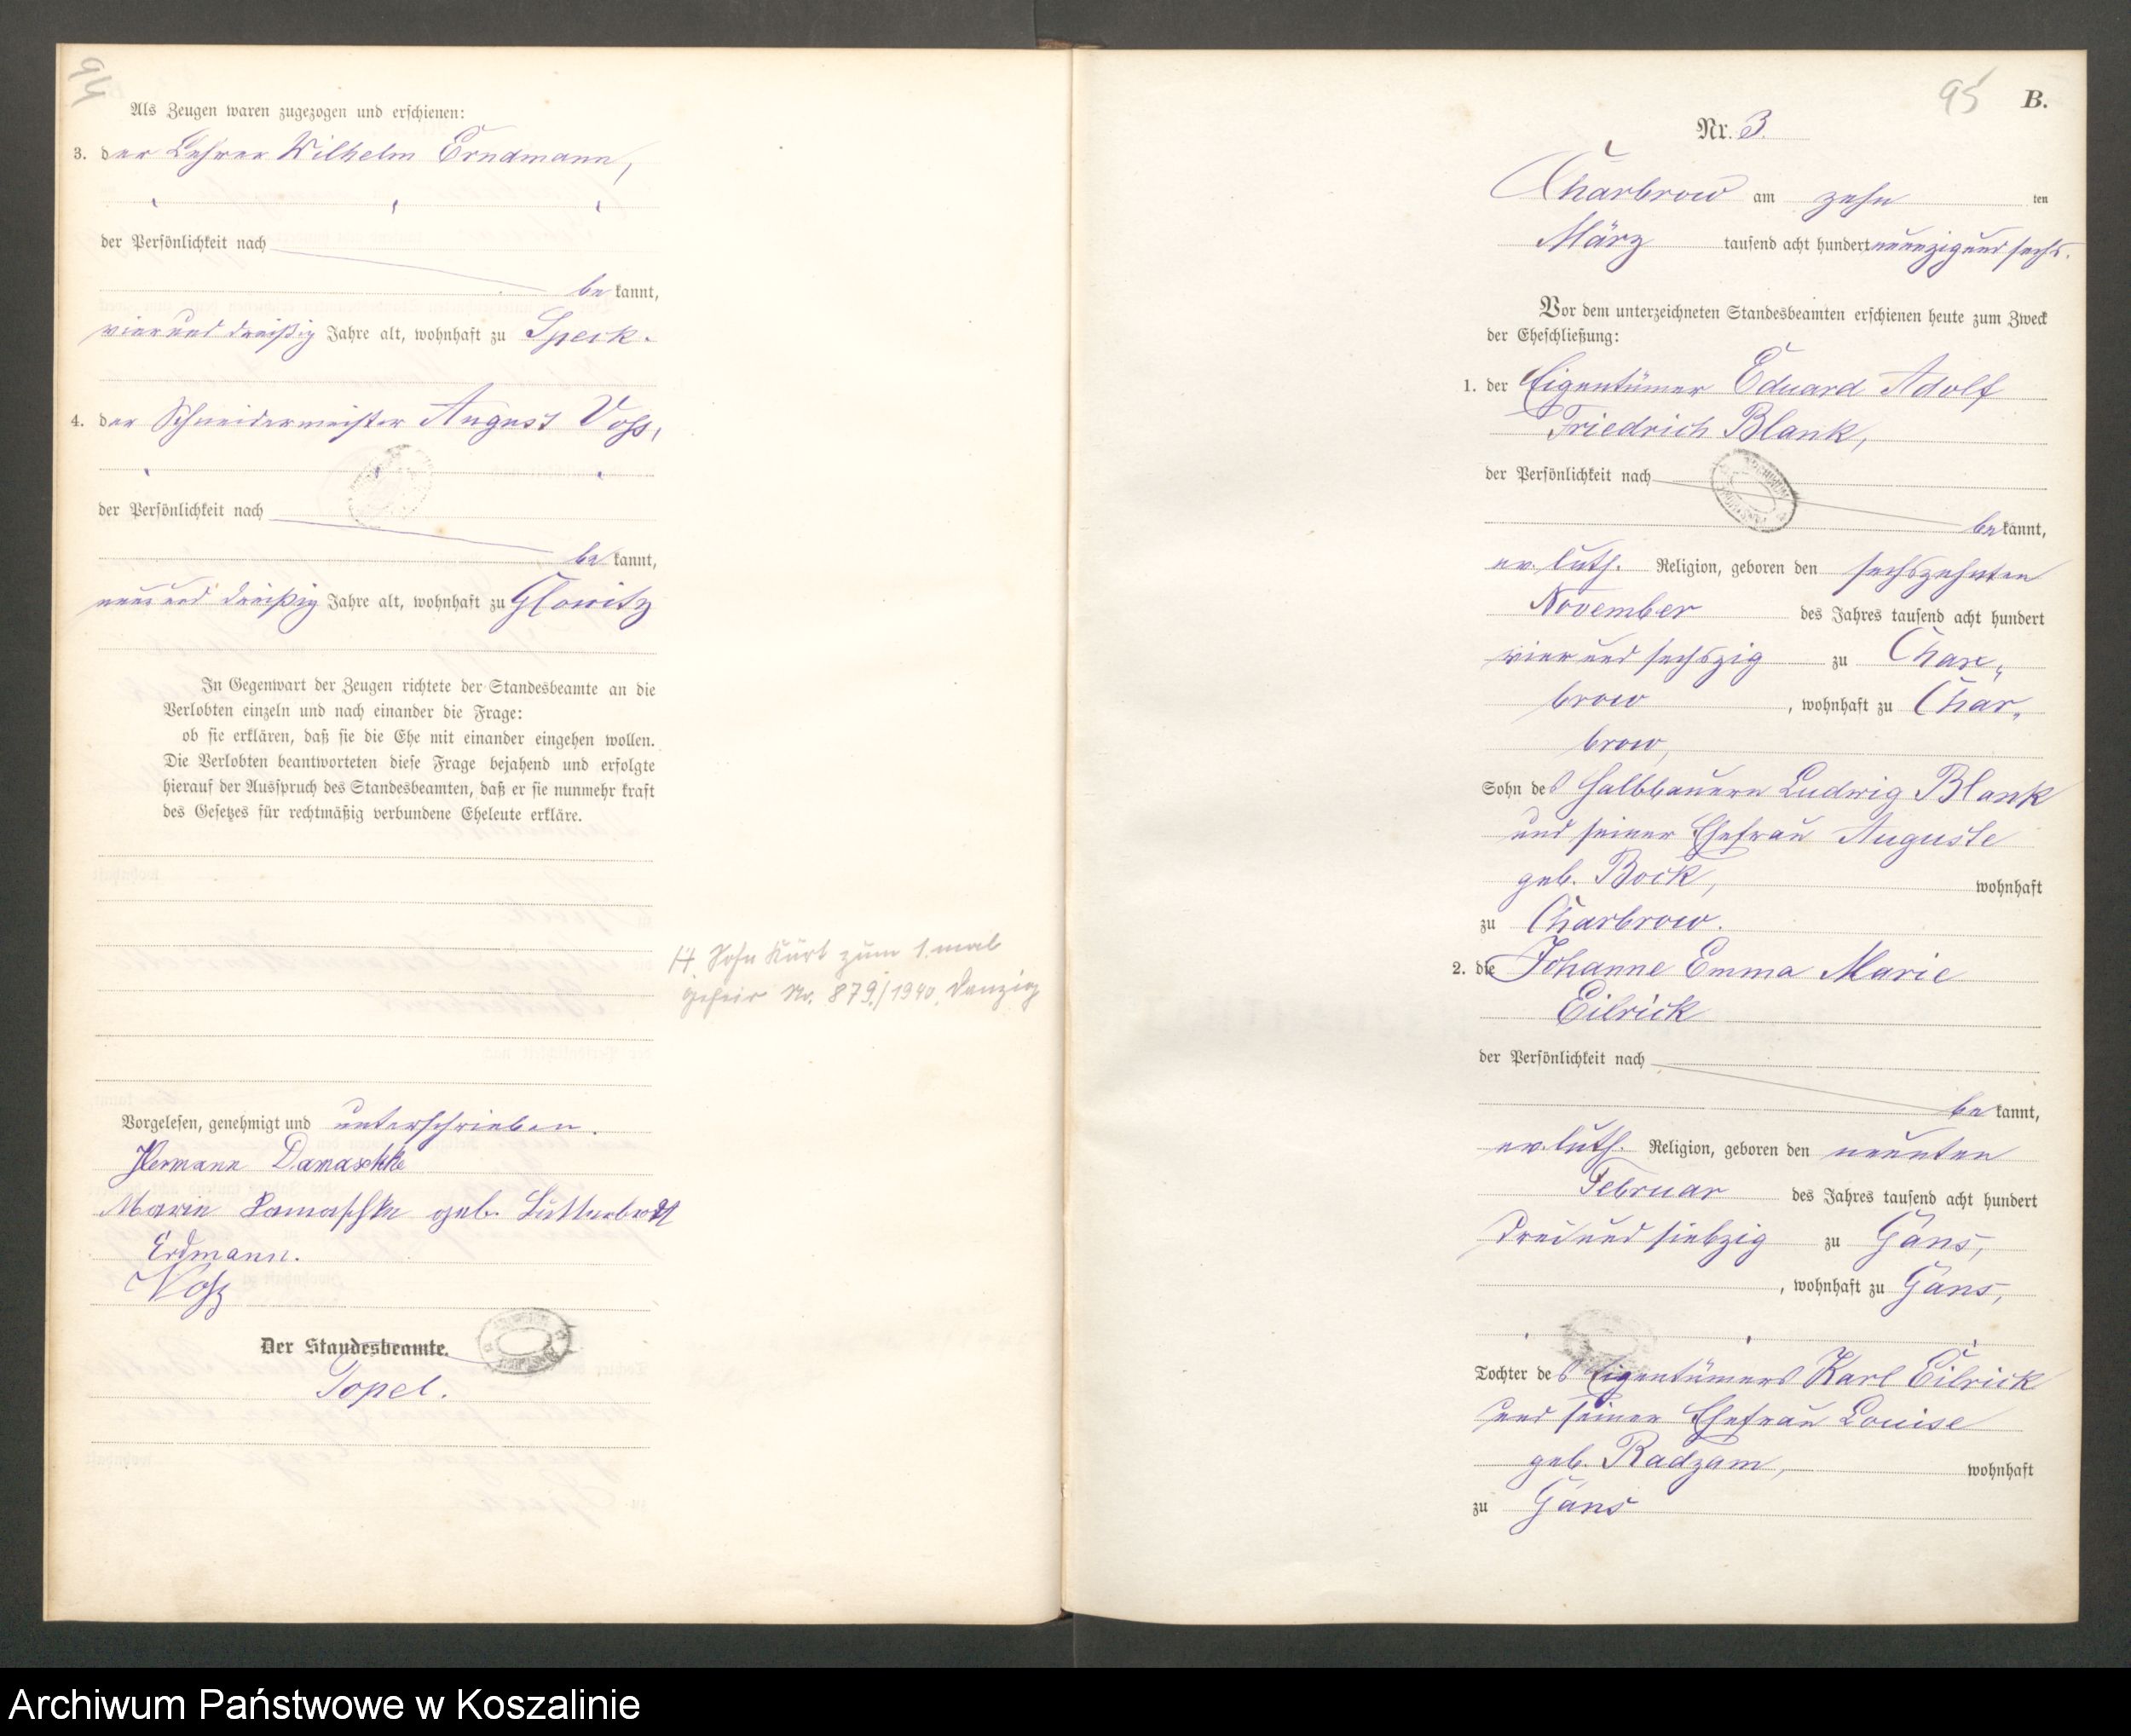 94
Als Zeugen waren zugezogen und erschienen:
3. der Lehrer Wilhelm Erndmann,
der Persönlichkeit nach
be kannt,
vier und dreißig Jahre alt, wohnhaft zu Speck.
4. der Schneidermeister August Voss,
der Persönlichkeit nach
be kannt,
neun und dreißig Jahre alt, wohnhaft zu Glowitz
In Gegenwart der Zeugen richtete der Standesbeamte an die
Verlobten einzeln und nach einander die Frage:
ob sie erklären, daß sie die Ehe mit einander eingehen wollen.
Die Verlobten beantworteten diese Frage bejahend und erfolgte
hierauf der Ausspruch des Standesbeamten, daß er sie nunmehr kraft
des Gesetzes für rechtmäßig verbundene Eheleute erkläre.
H. Sohn Kurt zum 1. mal
geheir Nr. 879./1940, Danzig
Vorgelesen, genehmigt und unterschrieben.
Hermann Damaschke
Marie Damaschke geb. Lütterbrodt
Erdmann.
Voß
Der Standesbeamte.
Topel.
95
B.
Nr. 3.
Charbrow am zehn ten
März tausend acht hundert neunzig und sechs.
Vor dem unterzeichneten Standesbeamten erschienen heute zum Zweck
der Eheschließung:
1. der Eigentümer Eduard Adolf
Friedrich Blank,
der Persönlichkeit nach
be kannt,
ev. luth. Religion, geboren den sechszehnten
November des Jahres tausend acht hundert
vier und sechszig zu Char„
brow, wohnhaft zu Char„
brow,
Sohn des Halbbauern Ludwig Blank
und seiner Ehefrau Auguste
geb. Bock, wohnhaft
zu Charbrow.
2. die Johanne Emma Marie
Eilrick
der Persönlichkeit nach
be kannt,
ev. luth. Religion, geboren den neunten
Februar des Jahres tausend acht hundert
drei und siebzig zu Gans,
, wohnhaft zu Gans,
Tochter des Eigentümers Karl Eilrick
und seiner Ehefrau Louise
geb. Radzam, wohnhaft
zu Gans
Archiwum Państwowe w Koszalinie